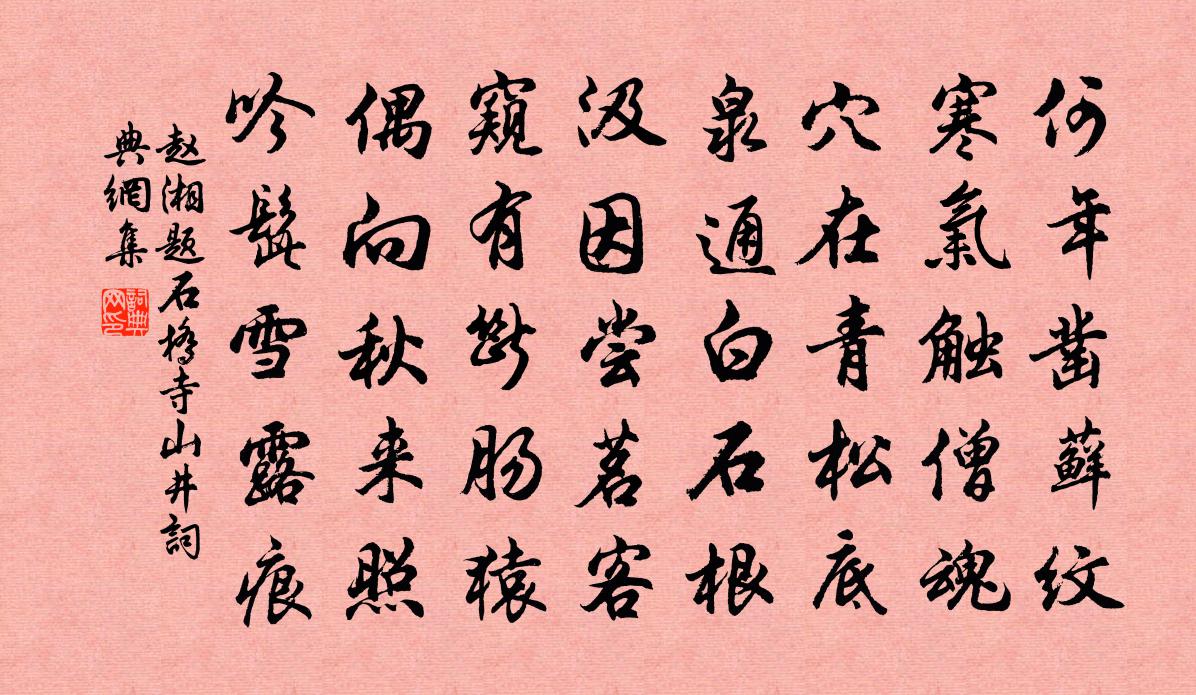 何年凿蘚纹
寒氣触僧魂
穴在青松底
泉通白石根
汲因尝茗客
窺有断肠猿
偶向秋来照
吟髭雪露痕
赵湘题石橋寺山井詞
典網集
詞典
网印